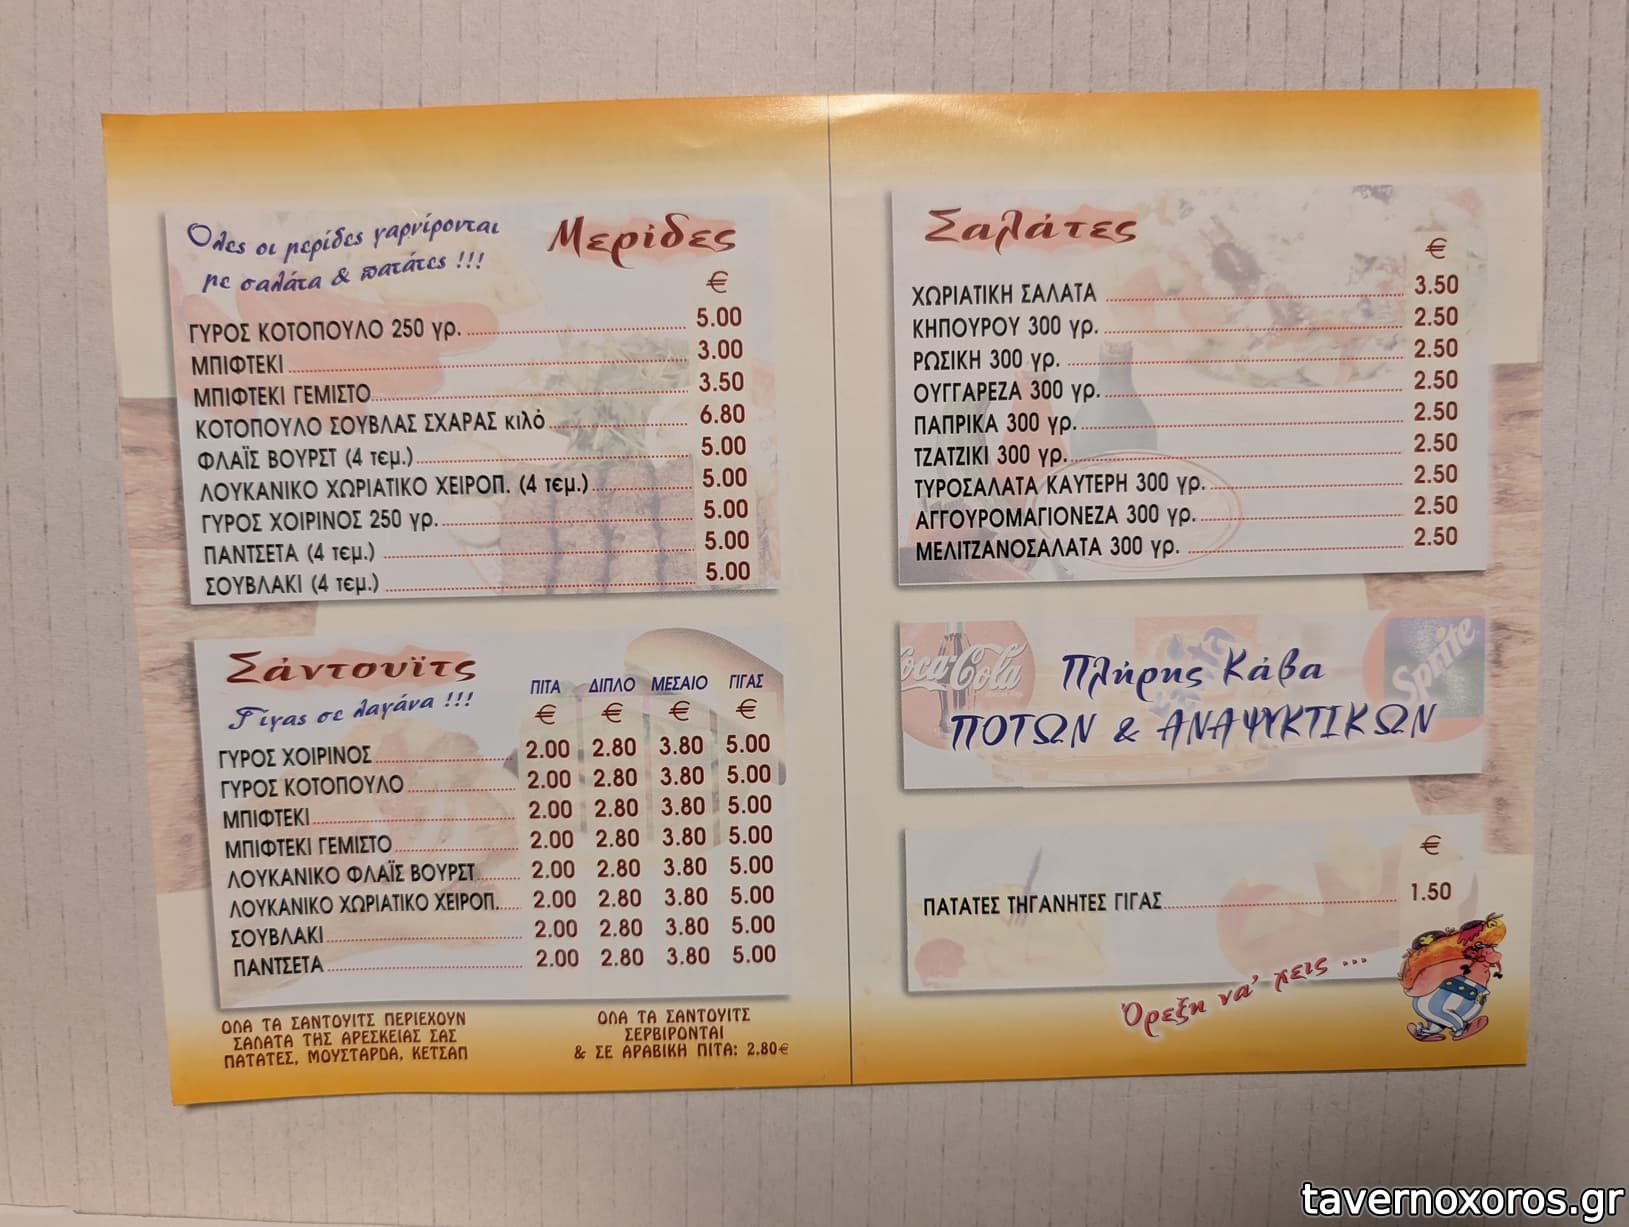 Όλες οι μερίδες γαρνίρονται
με σαλάτα & πατάτες !!!
Μερίδες
€
ΓΥΡΟΣ ΚΟΤΟΠΟΥΛΟ 250 γρ. 5.00
ΜΠΙΦΤΕΚΙ 3.00
ΜΠΙΦΤΕΚΙ ΓΕΜΙΣΤΟ 3.50
ΚΟΤΟΠΟΥΛΟ ΣΟΥΒΛΑΣ ΣΧΑΡΑΣ κιλό 6.80
ΦΛΑΪΣ ΒΟΥΡΣΤ (4 τεμ.) 5.00
ΛΟΥΚΑΝΙΚΟ ΧΩΡΙΑΤΙΚΟ ΧΕΙΡΟΠ. (4 τεμ.) 5.00
ΓΥΡΟΣ ΧΟΙΡΙΝΟΣ 250 γρ. 5.00
ΠΑΝΤΣΕΤΑ (4 τεμ.) 5.00
ΣΟΥΒΛΑΚΙ (4 τεμ.) 5.00
Σάντουϊτς
Γίγας σε λαγάνα !!!
ΠΙΤΑ ΔΙΠΛΟ ΜΕΣΑΙΟ ΓΙΓΑΣ
€ € € €
ΓΥΡΟΣ ΧΟΙΡΙΝΟΣ 2.00 2.80 3.80 5.00
ΓΥΡΟΣ ΚΟΤΟΠΟΥΛΟ 2.00 2.80 3.80 5.00
ΜΠΙΦΤΕΚΙ 2.00 2.80 3.80 5.00
ΜΠΙΦΤΕΚΙ ΓΕΜΙΣΤΟ 2.00 2.80 3.80 5.00
ΛΟΥΚΑΝΙΚΟ ΦΛΑΪΣ ΒΟΥΡΣΤ 2.00 2.80 3.80 5.00
ΛΟΥΚΑΝΙΚΟ ΧΩΡΙΑΤΙΚΟ ΧΕΙΡΟΠ. 2.00 2.80 3.80 5.00
ΣΟΥΒΛΑΚΙ 2.00 2.80 3.80 5.00
ΠΑΝΤΣΕΤΑ 2.00 2.80 3.80 5.00
ΟΛΑ ΤΑ ΣΑΝΤΟΥΙΤΣ ΠΕΡΙΕΧΟΥΝ
ΣΑΛΑΤΑ ΤΗΣ ΑΡΕΣΚΕΙΑΣ ΣΑΣ
ΠΑΤΑΤΕΣ, ΜΟΥΣΤΑΡΔΑ, ΚΕΤΣΑΠ
ΟΛΑ ΤΑ ΣΑΝΤΟΥΙΤΣ
ΣΕΡΒΙΡΟΝΤΑΙ
& ΣΕ ΑΡΑΒΙΚΗ ΠΙΤΑ: 2.80€
Σαλάτες
€
ΧΩΡΙΑΤΙΚΗ ΣΑΛΑΤΑ 3.50
ΚΗΠΟΥΡΟΥ 300 γρ. 2.50
ΡΩΣΙΚΗ 300 γρ. 2.50
ΟΥΓΓΑΡΕΖΑ 300 γρ. 2.50
ΠΑΠΡΙΚΑ 300 γρ. 2.50
ΤΖΑΤΖΙΚΙ 300 γρ. 2.50
ΤΥΡΟΣΑΛΑΤΑ ΚΑΥΤΕΡΗ 300 γρ. 2.50
ΑΓΓΟΥΡΟΜΑΓΙΟΝΕΖΑ 300 γρ. 2.50
ΜΕΛΙΤΖΑΝΟΣΑΛΑΤΑ 300 γρ. 2.50
Coca-Cola
Sprite
Πλήρης Κάβα
ΠΟΤΩΝ & ΑΝΑΨΥΚΤΙΚΩΝ
€
ΠΑΤΑΤΕΣ ΤΗΓΑΝΗΤΕΣ ΓΙΓΑΣ 1.50
Όρεξη να' χεις ...
tavernoxoros.gr